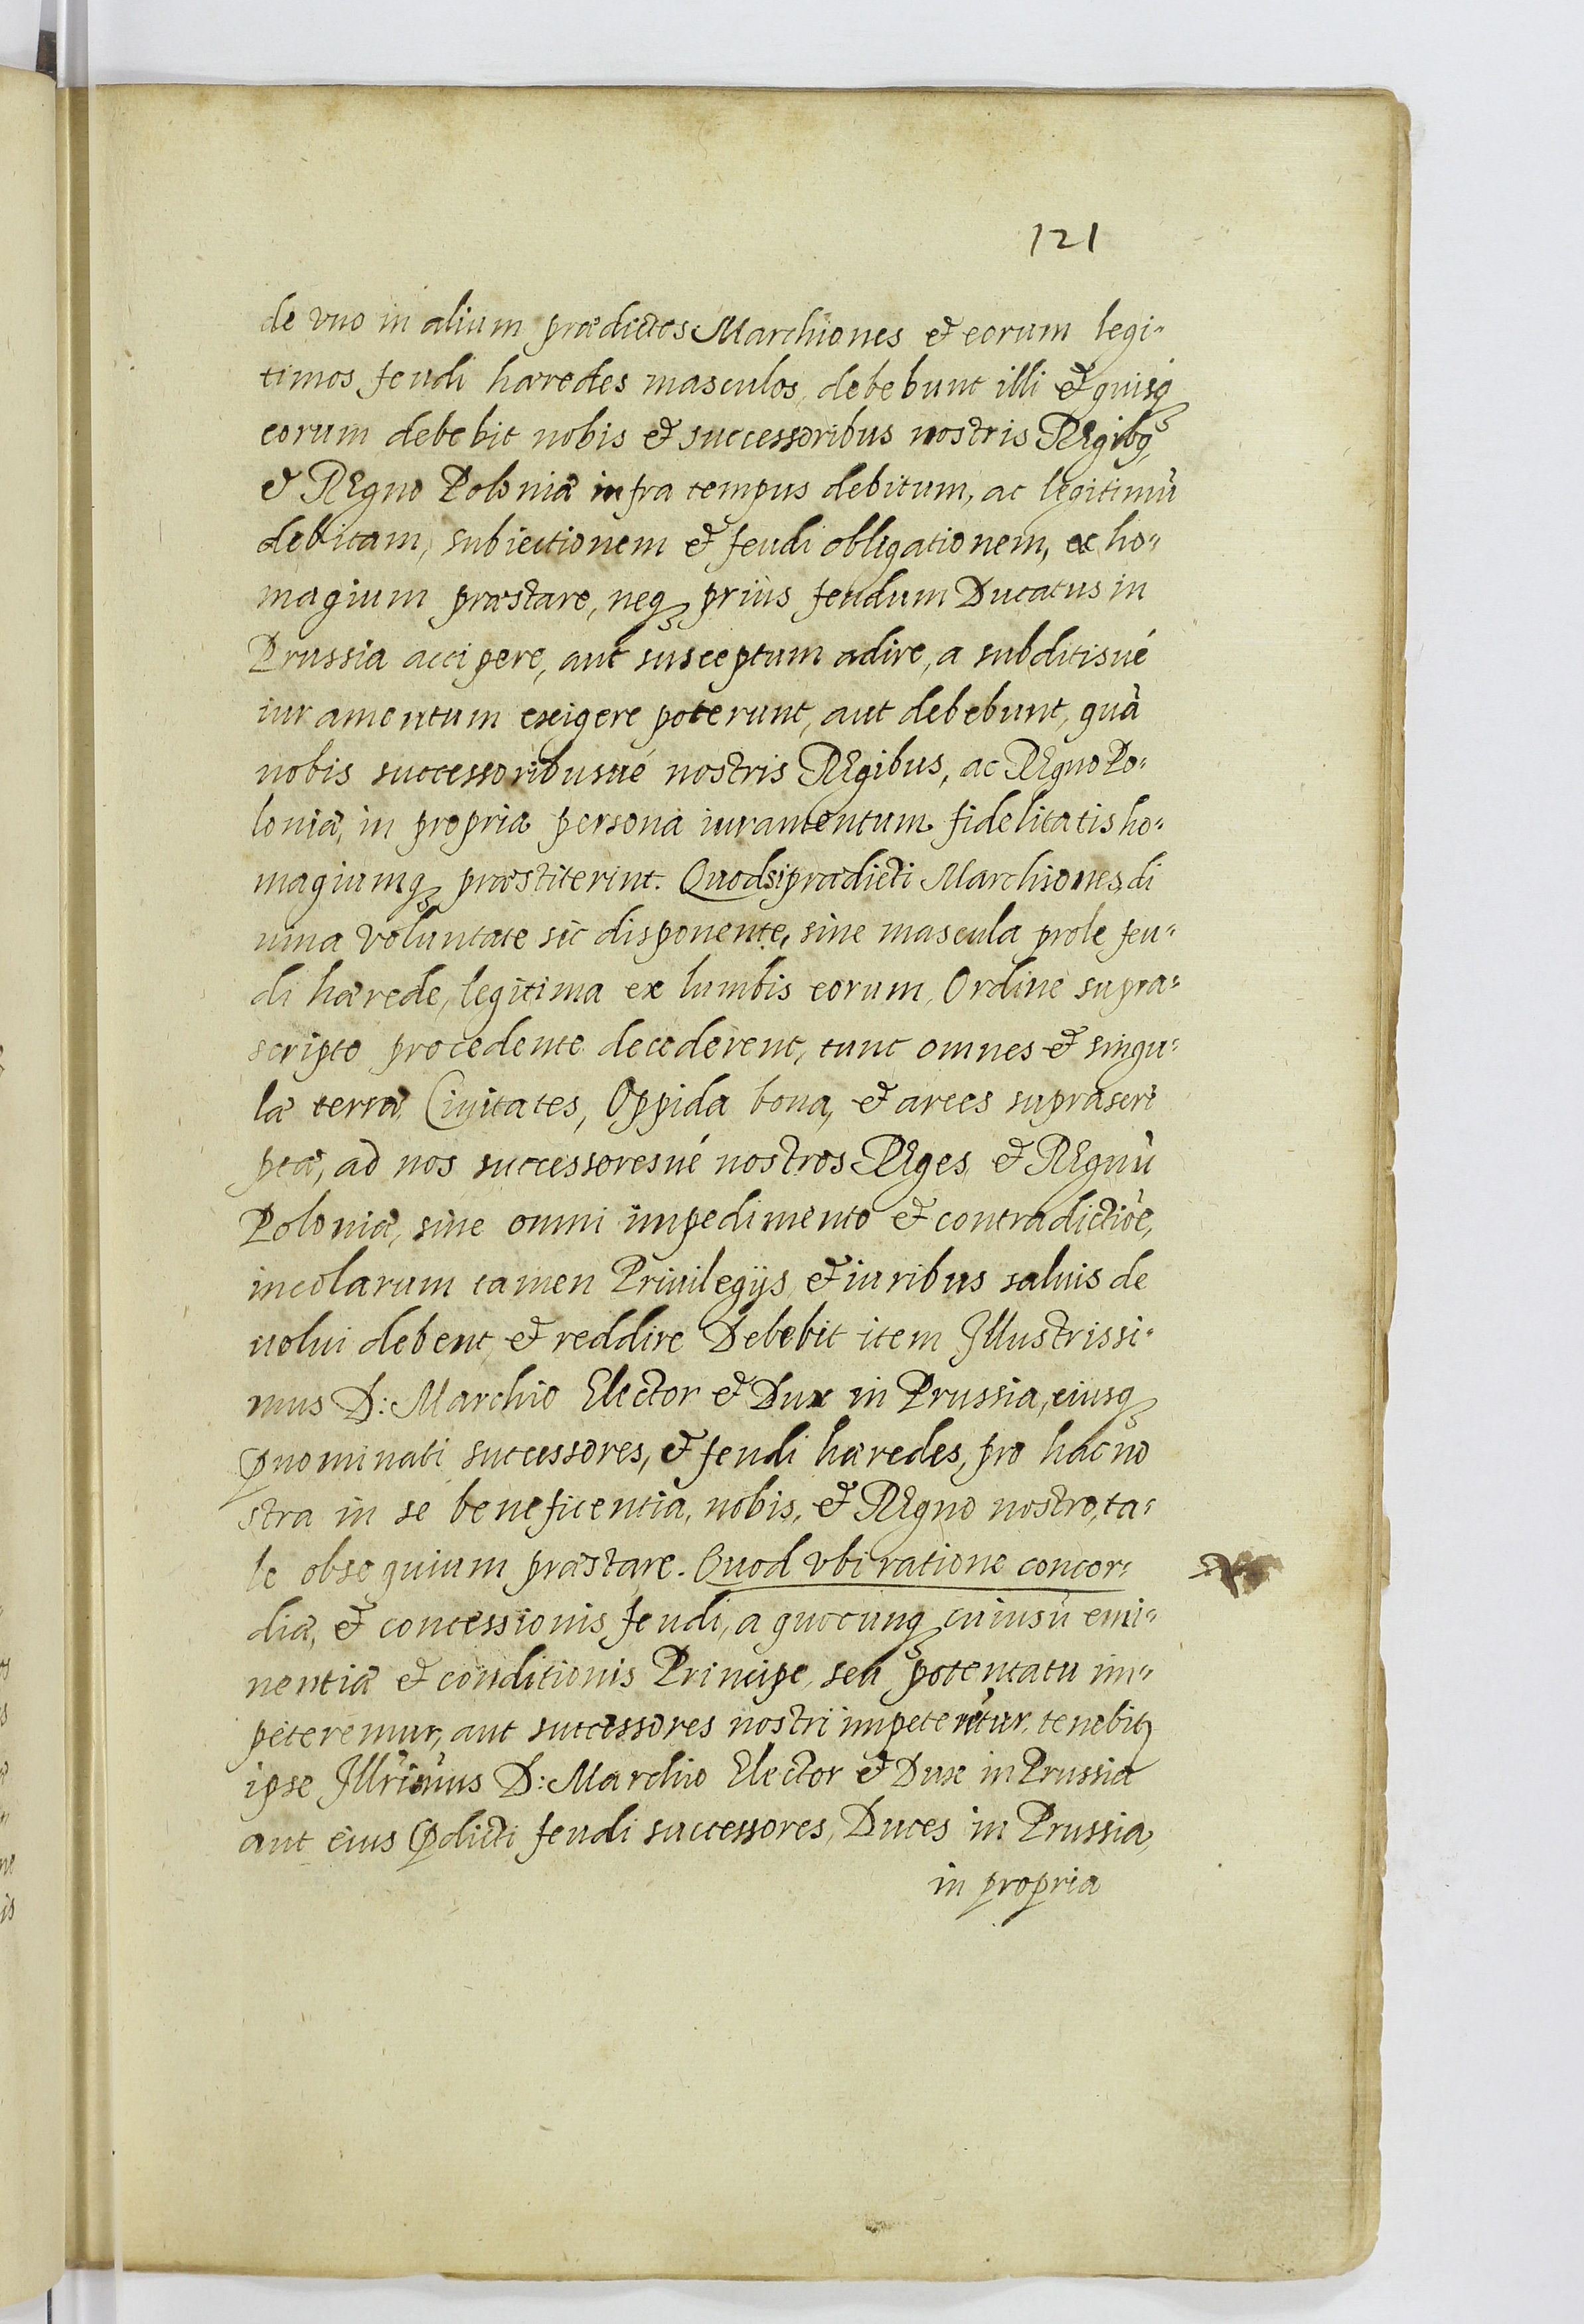 121
de vno in alium prædictos Marchiones et eorum legi-
timos feudi hæredes masculos, debebunt illi et quisq3
eorum debebit nobis et successoribus nostris Regibq,
et Regno Poloniæ infra tempus debitum, ac legitimũ
debitam, subiectionem et feudi obligationem, ac ho-
magium præstare, neq3 prius feudum Ducatus in
Prussia accipere, aut susceptum adire, a subditisué
iuramentum exigere poterunt, aut debebunt, quã
nobis successoribusué nostris Regibus, ac Regno Po-
loniæ, in propria persona iuramentum fidelitatis ho-
magiumq3 præstiterint. Quodsi prædicti Marchiones di
uina voluntate sic disponente, sine mascula prole feu-
di hærede, legitima ex lumbis eorum, Ordine supra-
scripto procedente decederent, tunc omnes et singu-
læ terræ, Ciuitates, Oppida bona, et arces suprascri
ptæ, ad nos successoresué nostros Reges et Regnũ
Poloniæ, sine omni impedimento et contradictiõe,
incolarum tamen Priuilegijs, et iuribus saluis de
uolui debent, et reddire Debebit item Illustrissi-
mus D: Marchio Elector et Dux in Prussia, eiusq3
p̃nominati successores, et feudi hæredes, pro hac no
stra in se beneficentia, nobis, et Regno nostro, ta-
le obsequium præstare. Quod vbi ratione concor-
diæ, et concessionis feudi, a quocunq3 cuiusũ emi-
nentiæ et conditionis Principe, seu potentatu im-
peteremur, aut successores nostri impeterẽtur, tenebitꝛ
ipse Illr̃imus D: Marchio Elector et Dux in Prussia
aut eius p̃dicti feudi successores, Duces in Prussia,
in propria